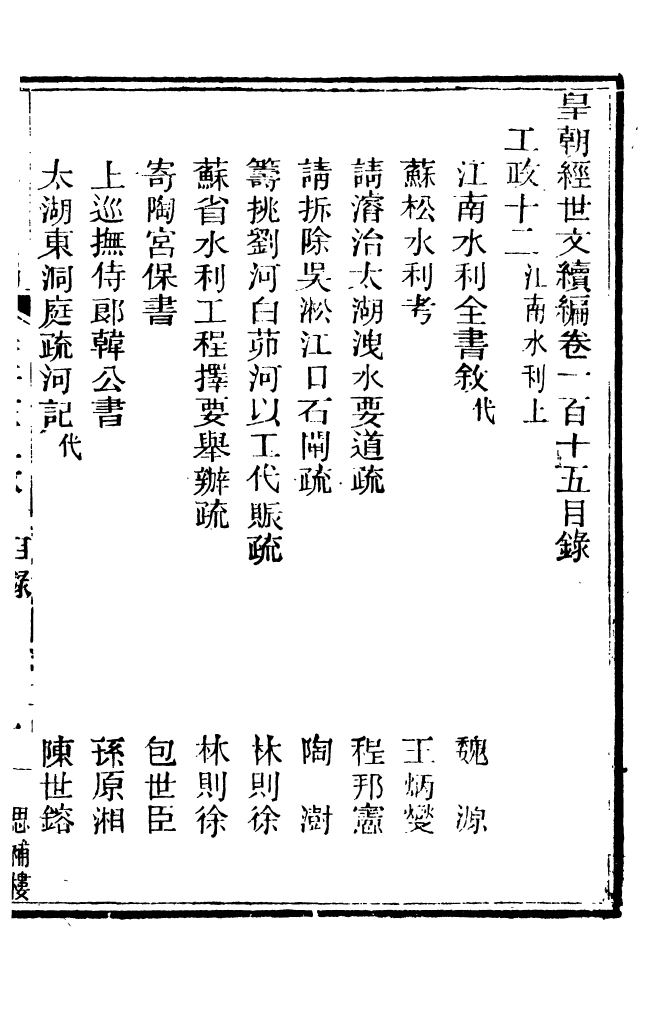 皇朝經世文續編卷一百十五目錄
工政十二 江南水利上
江南水利全書敘 代 魏源
蘇松水利考 王炳燮
請濬治太湖洩水要道疏 程邦憲
請拆除吳淞江口石閘疏 陶澍
籌挑劉河白茆河以工代賑疏 林則徐
蘇省水利工程擇要舉辦疏 林則徐
寄陶宮保書 包世臣
上巡撫侍郎韓公書 孫原湘
太湖東洞庭疏河記 代 陳世鎔
目錄 一 思補樓